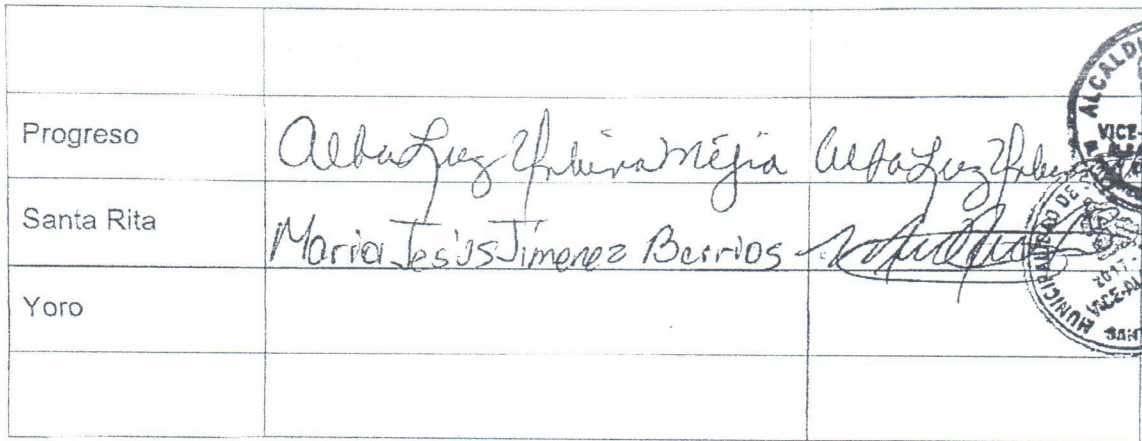 Progreso Alba Luz Urbina Méjia Alba Luz Urbina
Santa Rita Maria Jesús Jimenez Berrios
Yoro
ALCALD
VICE-
MUNICIPALIDAD DE
2017-
VICE-AL
SANT